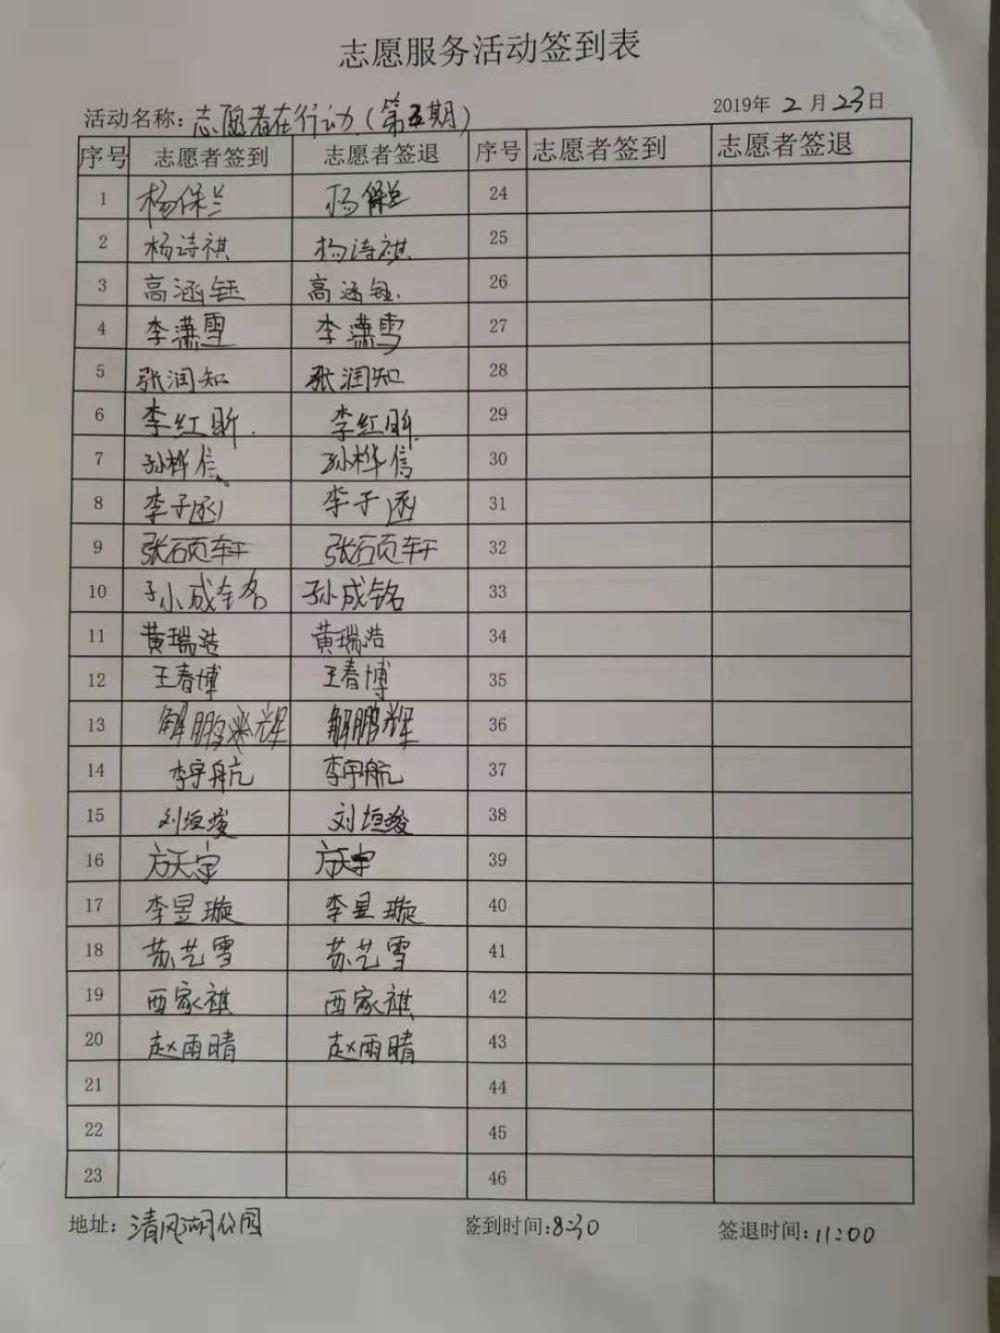 志愿服务活动签到表
活动名称：志愿者在行动（第五期） 2019年2月23日
序号 志愿者签到 志愿者签退 序号 志愿者签到 志愿者签退
1 杨保兰 杨保兰 24
2 杨诗祺 杨诗祺 25
3 高涵钰 高涵钰. 26
4 李潇雪 李潇雪 27
5 张润知 张润知 28
6 李红昕. 李红昕. 29
7 孙桦信 孙桦信 30
8 李子函 李子函 31
9 张硕轩 张硕轩 32
10 孙成铭 孙成铭 33
11 黄瑞浩 黄瑞浩 34
12 王春博 王春博 35
13 解鹏辉 解鹏辉 36
14 李宇航 李宇航 37
15 刘垣峻 刘垣峻 38
16 方天宇 方天宇 39
17 李昱璇 李昱璇 40
18 苏艺雪 苏艺雪 41
19 西家祺 西家祺 42
20 赵雨晴 赵雨晴 43
21 44
22 45
23 46
地址：清风湖公园 签到时间：8:30 签退时间：11:00